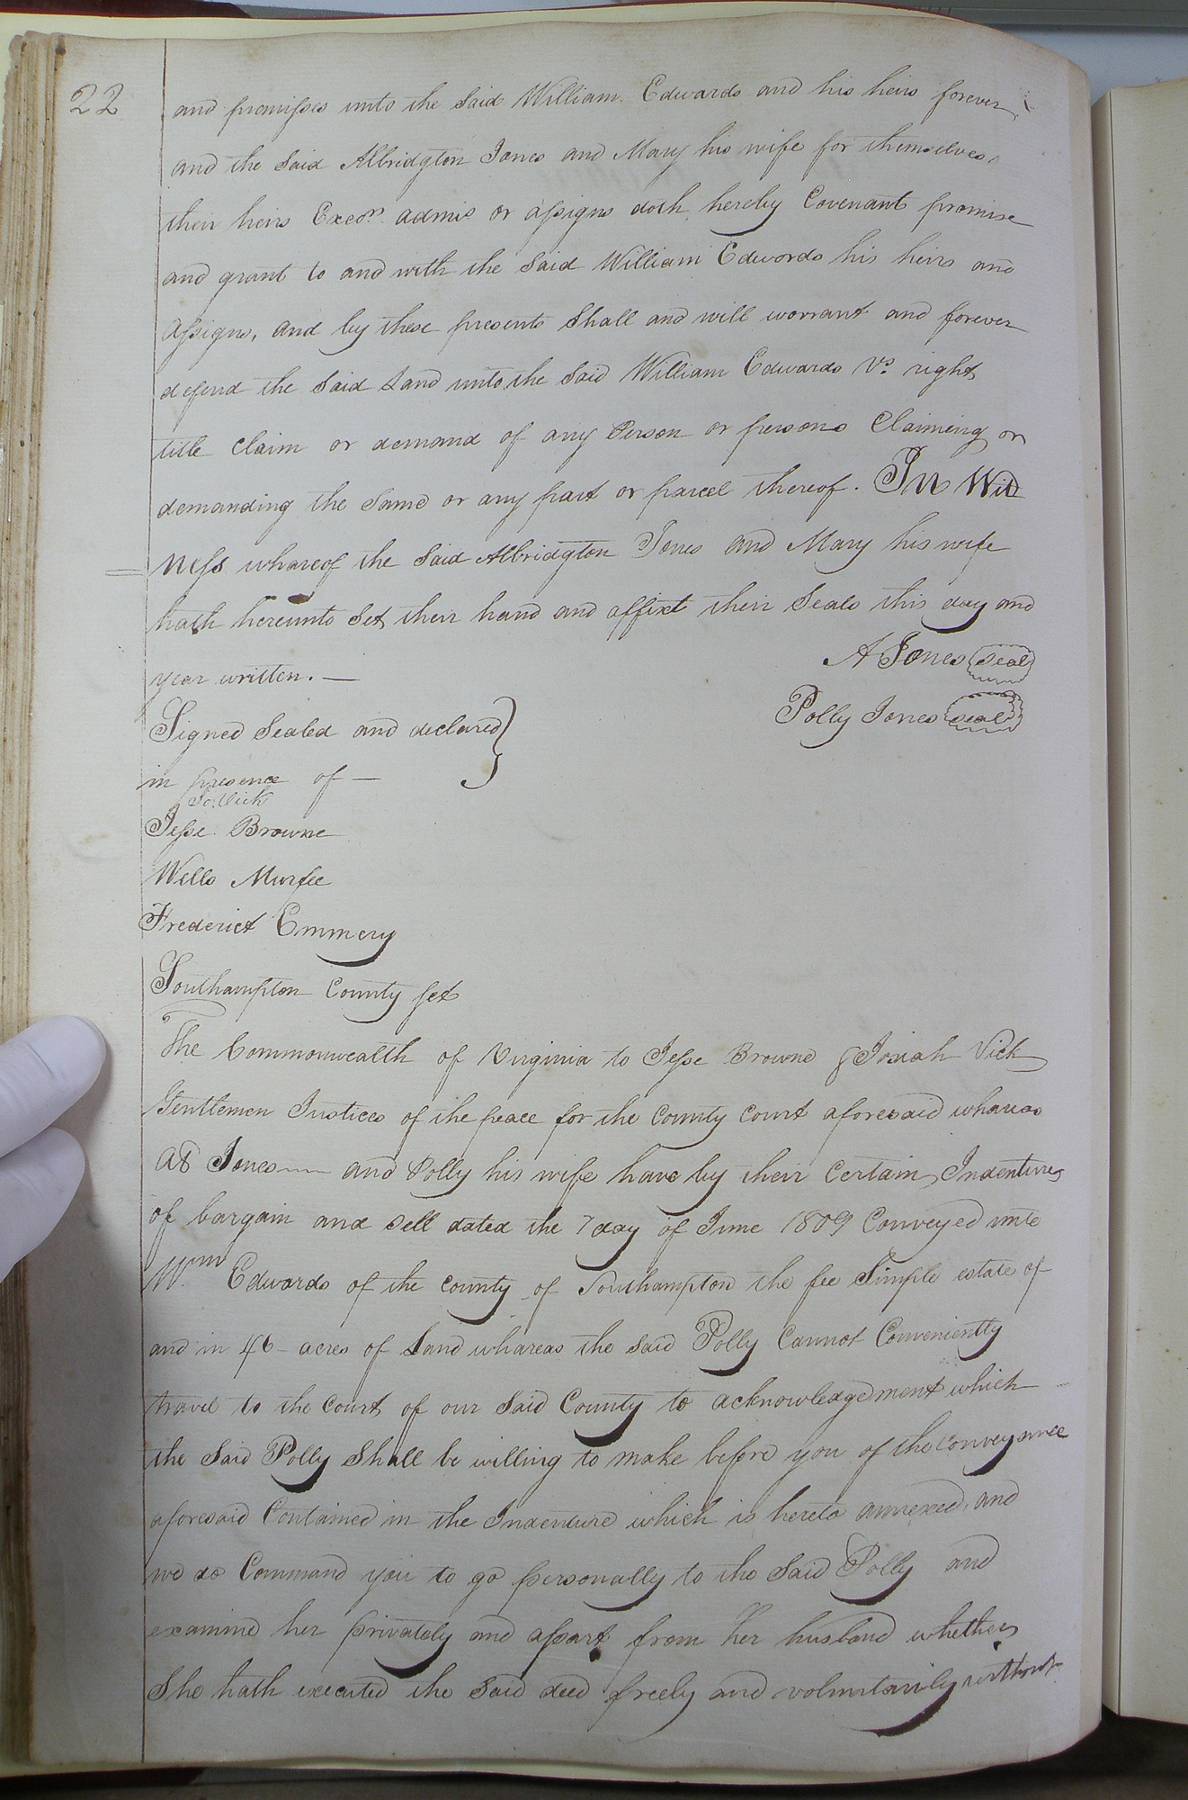 22
and premisses unto the Said William Edwards and his heirs forever,
and the Said Albridgton Jones and Mary his wife for themselves
their heirs Exeors. admis or assigns doth hereby Covenant promise
and grant to and with the Said William Edwards his heirs and
assigns, and by these presents Shall and will worrant and forever
defend the Said Land unto the Said William Edwards Vs. right
title Claim or demand of any Person or persons Claiming or
demanding the Same or any part or parcel thereof. In Wit
=ness whareof the Said Albridgton Jones and Mary his wife
hath hereunto Set their hand and affixt their Seals this day and
year written. —
A Jones seal
Polly Jones seal
Signed Sealed and declared
in presence of —
Jo. Vick
Jesse Browne
Wells Murfee
Frederict Emmery
Southampton County Sct
The Commonwealth of Virginia to Jesse Browne & Josiah Vick
Gentlemen Justices of the peace for the County Court aforesaid whareas
AB Jones — and Polly his wife have by their Certain Indentures
of bargain and Sell dated the 7 day of June 1809 Conveyed unto
Wm Edwards of the County of Southampton the fee Simple estate of
and in 46 - acres of Land whareas the said Polly Cannot Conveniently
travel to the Court of our Said County to acknowledgement which
the Said Polly Shall be willing to make before you of the conveyance
aforesaid Contained in the Indenture which is hereto annexed, and
we do Command you to go personally to the Said Polly and
examine her privately and apart from her husband whether
She hath executed the Said deed freely and voluntarily without